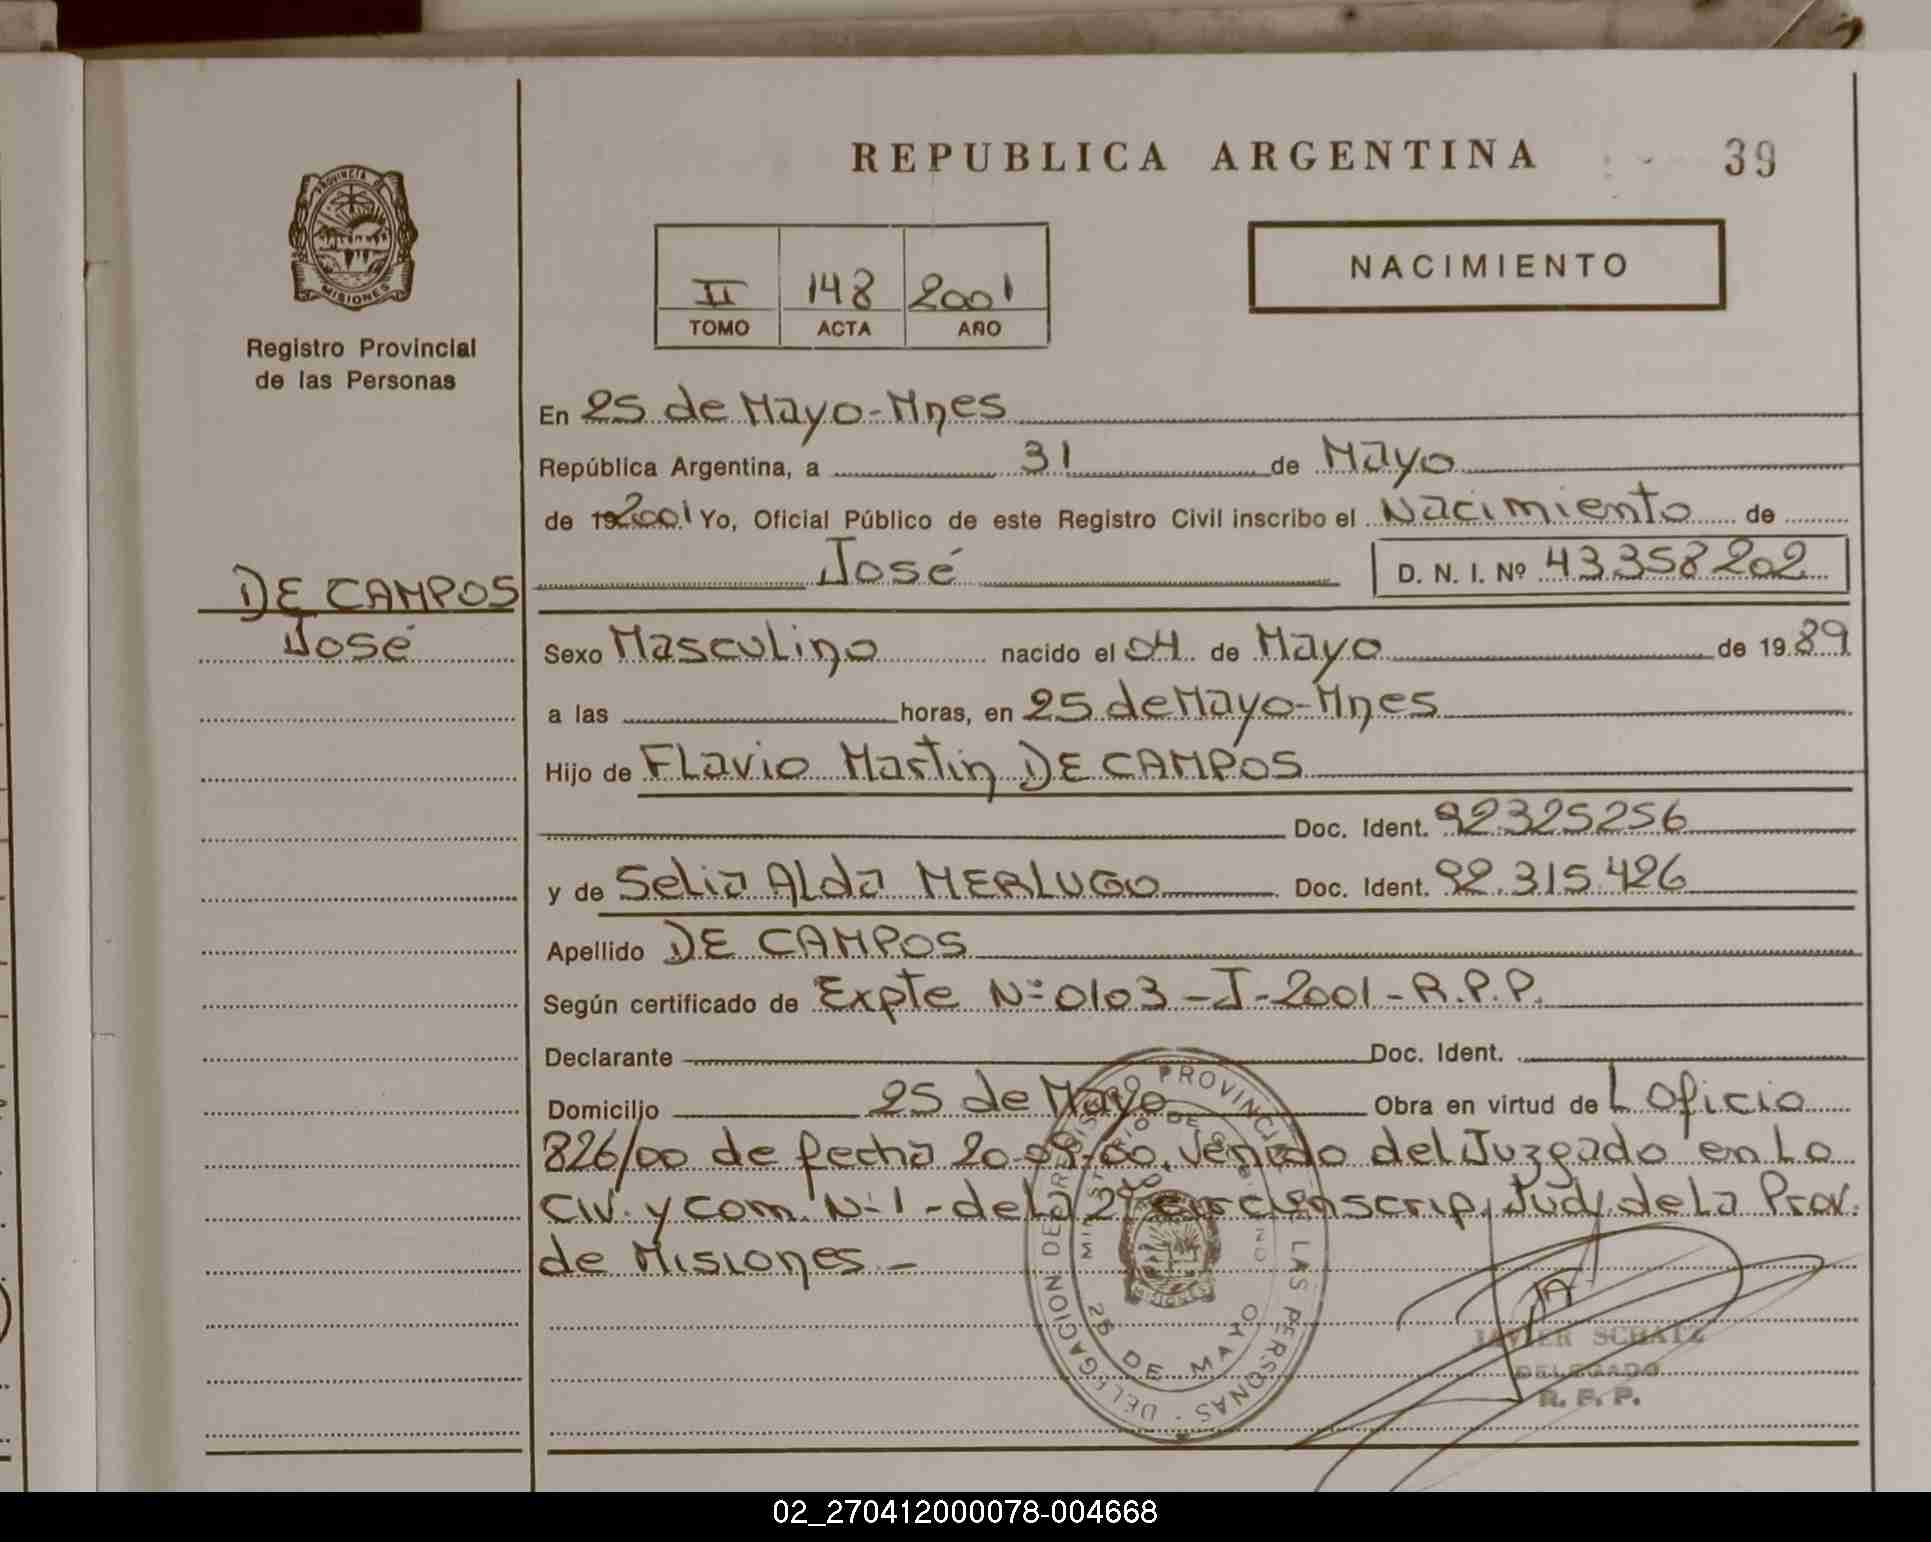 REPUBLICA ARGENTINA 39
PROVINCIA DE
MISIONES
Registro Provincial
de las Personas
II 148 2001
TOMO ACTA AÑO
NACIMIENTO
En 25 de Mayo-Mnes
República Argentina, a 31 de Mayo
de 192001 Yo, Oficial Público de este Registro Civil inscribo el Nacimiento de
José D. N. I. Nº 43358202
DE CAMPOS
José
Sexo Masculino nacido el 04 de Mayo de 1989
a las horas, en 25 de Mayo-Mnes
Hijo de Flavio Martin DE CAMPOS
Doc. Ident. 92325256
y de Selia Alda MERLUGO Doc. Ident. 92.315.426
Apellido DE CAMPOS
Según certificado de Expte Nº 0103-J-2001-R.P.P.
Declarante Doc. Ident.
Domicilio 25 de Mayo Obra en virtud de L Oficio
826/00 de fecha 20-09-00. venido del Juzgado en Lo
Civ. y Com. Nº 1 - de la 2º circunscrip. Jud. de La Prov.
de Misiones -
DELEGACION DE REGISTRO PROVINCIAL DE LAS PERSONAS
MINISTERIO DE GOBIERNO
MISIONES
25 DE MAYO
JAVIER SCHATZ
DELEGADO
R. P. P.
02_270412000078-004668